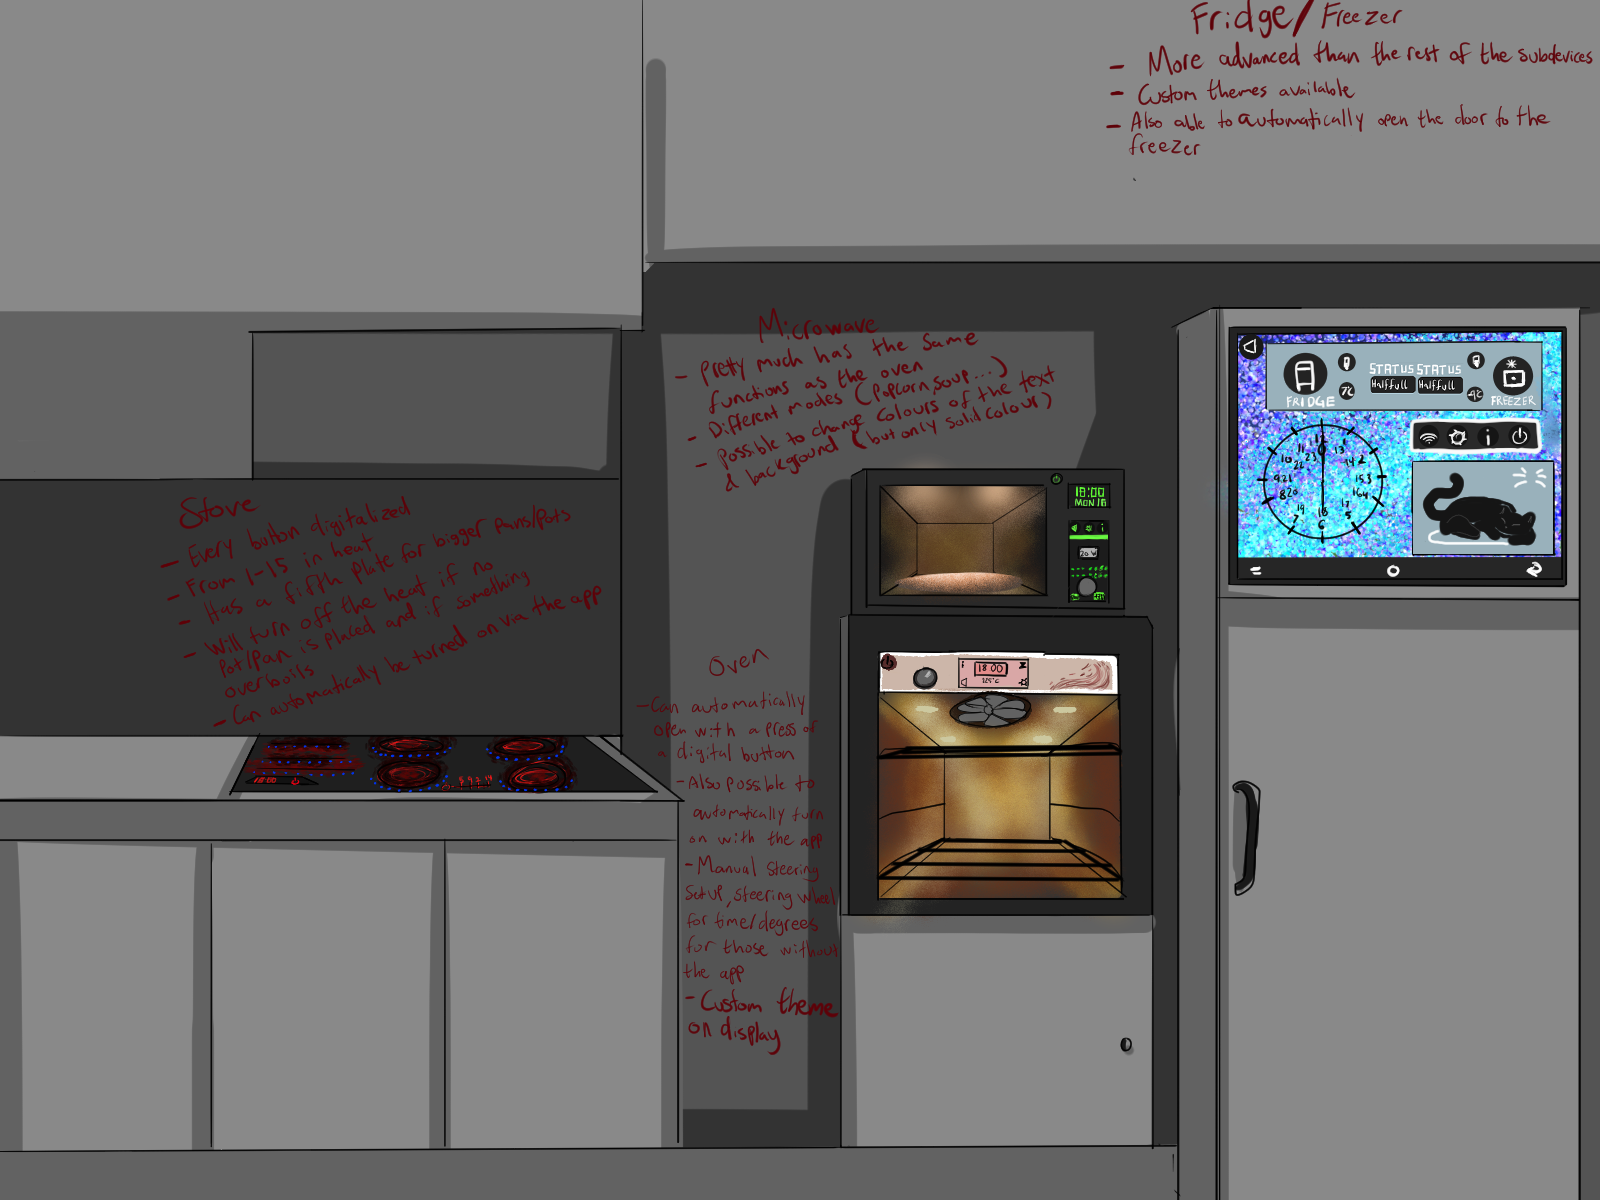 Fridge/Freezer
- More advanced than the rest of the subdevices
- Custom themes available
- Also able to automatically open the door to the
freezer
Microwave
- Pretty much has the same
functions as the oven
- Different modes (Popcorn, soup...)
- Possible to change colours of the text
& background (but only solid colour)
Stove
- Every button digitalized
- From 1-15 in heat
- Has a fifth plate for bigger pans/pots
- Will turn off the heat if no
Pot/Pan is placed and if something
overboils
- Can automatically be turned on via the app
Oven
- Can automatically
open with a press of
a digital button
- Also possible to
automatically turn
on with the app
- Manual steering
setup, steering wheel
for time/degrees
for those without
the app
- Custom theme
on display
STATUS STATUS
Halffull Halffull
7°C
FRIDGE
FREEZER
i
18:00
MON 18
i
18:00
i
18:00